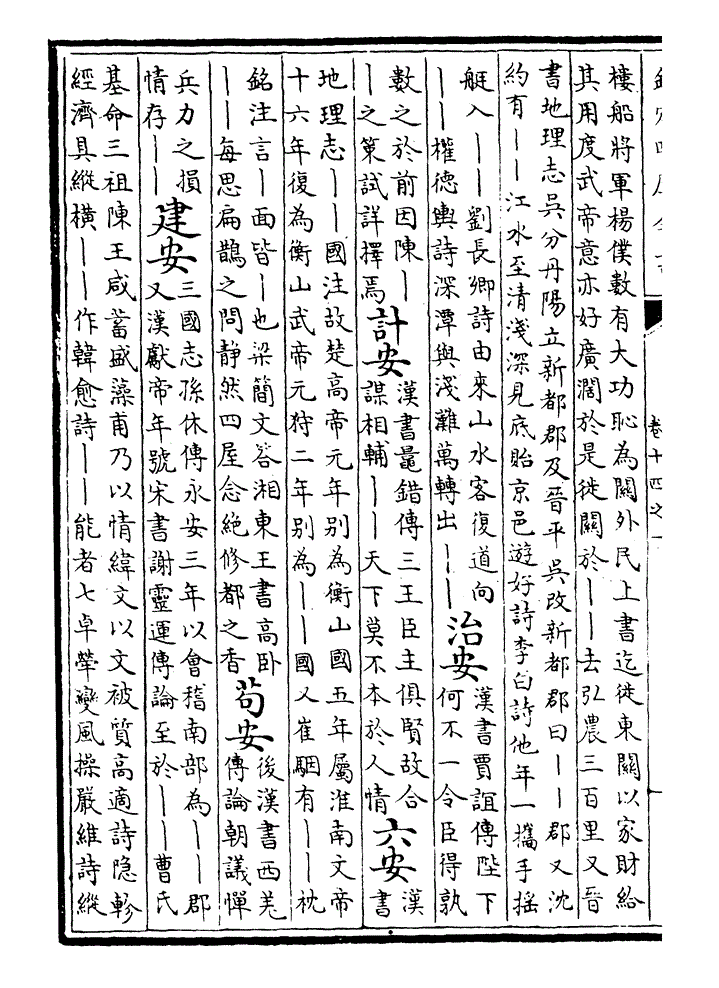 樓船將軍楊僕數有大功恥為關外民上書迄徙東關以家財給
其用度武帝意亦好廣濶於是徙關於||去弘農三百里又晉
書地理志吳分丹陽立新都郡及晉平吳改新都郡曰||郡又沈
約有||江水至清淺深見底貽京邑遊好詩李白詩他年一攜手揺
艇入||劉長卿詩由來山水客復道向
||權德輿詩深潭與淺灘萬轉出||
治安
漢書賈誼傳陛下
何不一令臣得孰
數之於前因陳|
|之策試詳擇焉
計安
漢書鼂錯傳三王臣主俱賢故合
謀相輔||天下莫不本於人情
六安
漢
書
地理志||國注故楚高帝元年别為衡山國五年屬淮南文帝
十六年復為衡山武帝元狩二年别為||國又崔駰有||枕
銘注言|面皆|也梁簡文答湘東王書高卧
||每思扁鵲之問静然四屋念絶修都之香
苟安
後漢書西羌
傳論朝議憚
兵力之損
情存||
建安
三國志孫休傳永安三年以會稽南部為||郡
又漢獻帝年號宋書謝靈運傳論至於||曹氏
基命三祖陳王咸蓄盛藻甫乃以情緯文以文被質高適詩隐軫
經濟具縱横||作韓愈詩||能者七卓犖變風操嚴維詩縱